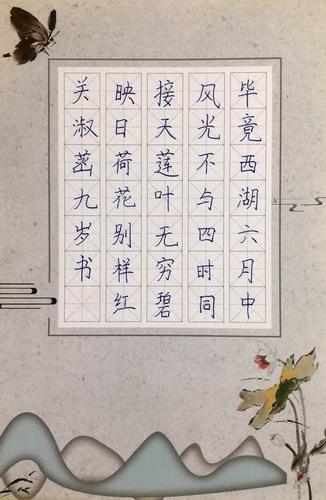 毕竟西湖六月中
风光不与四时同
接天莲叶无穷碧
映日荷花别样红
关淑菡九岁书